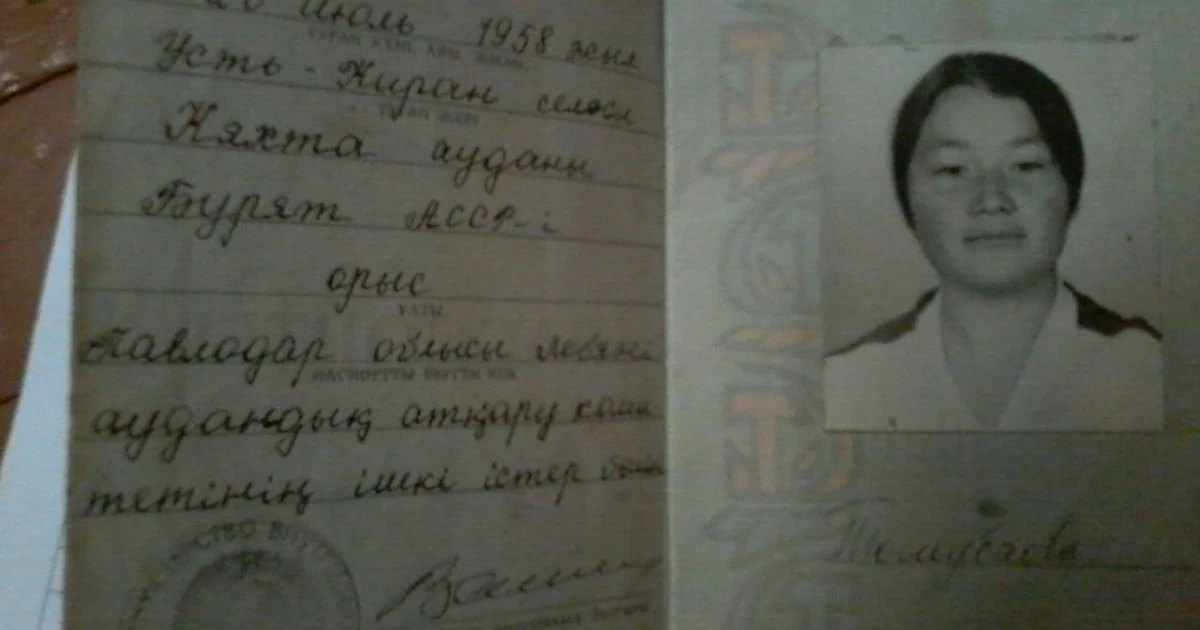 июль 1958 жыл
ТУҒАН КҮНІ, АЙЫ, ЖЫЛЫ
Усть-Киран селосы
ТУҒАН ЖЕРІ
Кяхта ауданы
Бурят АССР-і
орыс
ҰЛТЫ
Павлодар облысы
ПАСПОРТТЫ БЕРГЕН КЕК
аудандық атқару коми-
тетінің ішкі істер
СТВО ВНУТ